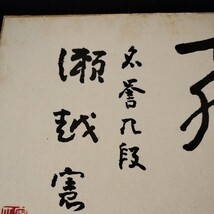 名誉九段
瀬越憲